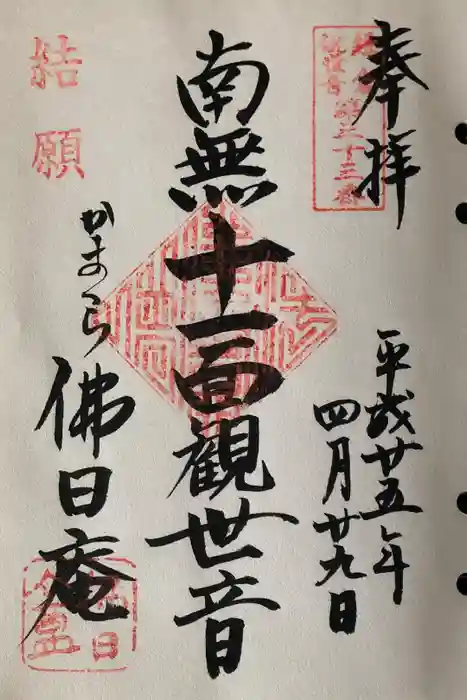 奉拝
鎌倉
観世音
第三十三番
平成廿五年
四月廿九日
南無十一面観世音
結願
かまくら
佛日庵